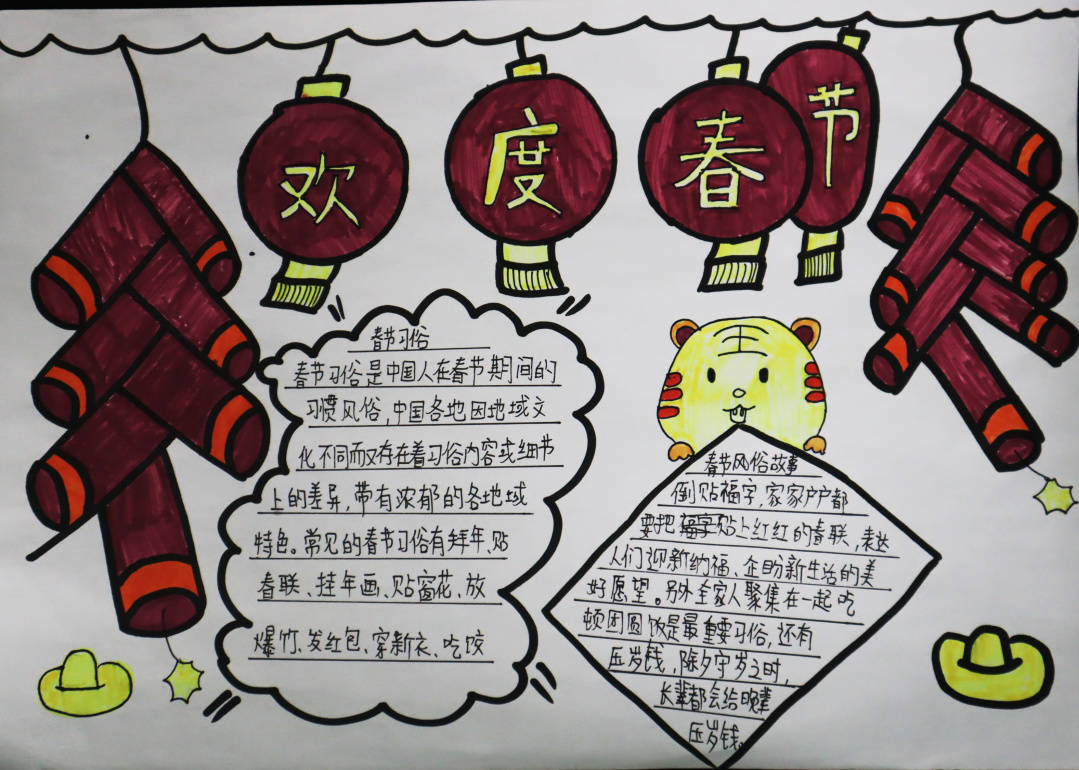 欢度春节
春节习俗
春节习俗是中国人在春节期间的
习惯风俗,中国各地因地域文
化不同而又存在着习俗内容或细节
上的差异,带有浓郁的各地域
特色。常见的春节习俗有拜年、贴
春联、挂年画、贴窗花、放
爆竹、发红包、穿新衣、吃饺
王
春节风俗故事
倒贴福字,家家户户都
要把福字贴上红红的春联、表达
人们迎新纳福、企盼新生活的美
好愿望。另外全家人聚集在一起吃
顿团圆饭是最重要习俗,还有
压岁钱,除夕守岁之时,
长辈都会给晚辈
压岁钱。